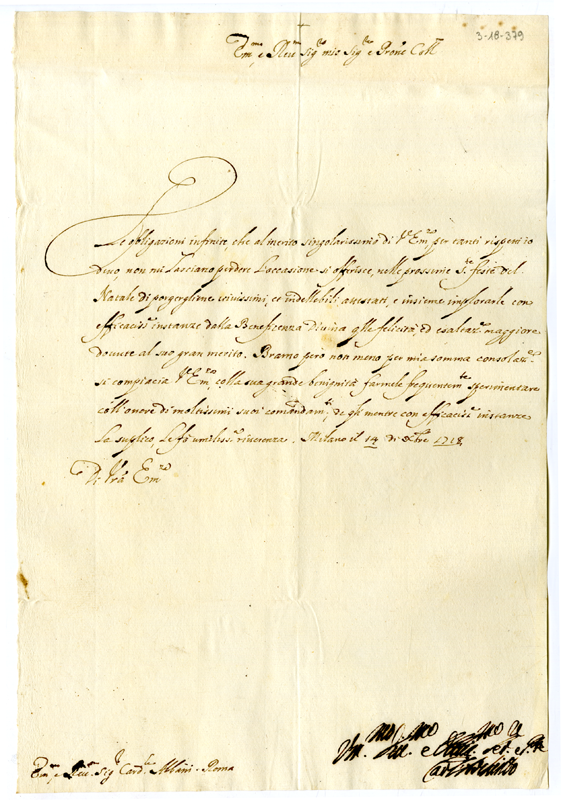 3-18-379
Em.mo e Rev.mo Sig.r mio Sig.r e Prone Coll.mo
Le obligazioni infinite che al merito singolarissimo di V.ra Em.za per tanti rispetti io
devo non mi lasciano perdere l'occasione si offerisce, nelle prossime S.te feste del
Natale di porgergliene vivissimi, et indellebili attestati, e insieme implorarle con
efficacis.me instanze dalla Beneficenza Divina q.lle felicità, ed esaltaz.ni maggiore
dovute al suo gran merito. Bramo però non meno per mia somma consolaz.ne
si compiacia V.ra Em.za colla sua grande benignità farmele frequentem.te sperimentare
coll'onore di moltissimi suoi comandam.ti, de q.li mentre con efficacis.me instanze
La suplico, Le fò umiliss.ma riverenza. Milano il 14 di Xbre 1718
Di V.ra Em.za
Em.mo e Rev.mo Sig.r Card.le Albani. Roma